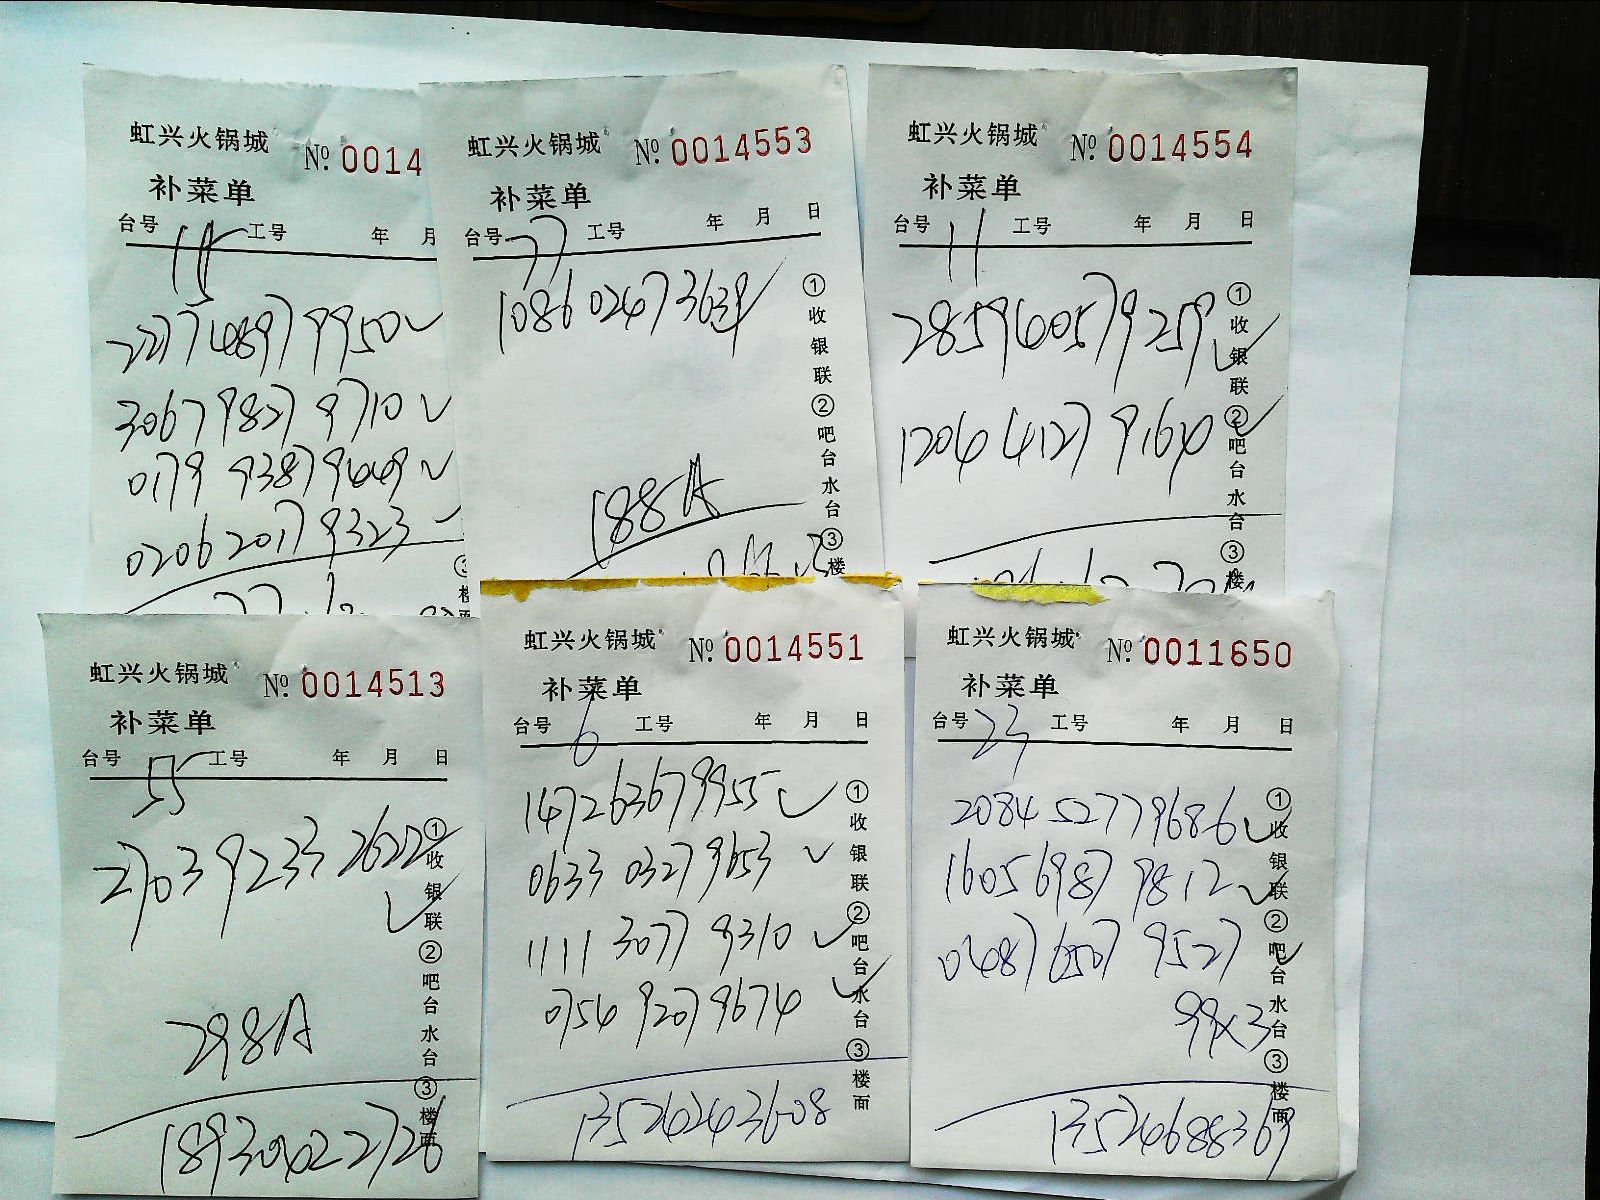 虹兴火锅城
No. 0014
补菜单
台号 15 工号 年 月
2277 4897 9950 ✓
3067 9827 9710 ✓
0179 9387 9449 ✓
0206 2017 9323
虹兴火锅城
No. 0014553
补菜单
台号 77 工号 年 月 日
1086 0247 3639 ✓
188A
①收银联②吧台水台③楼
虹兴火锅城
No. 0014554
补菜单
台号 11 工号 年 月 日
2859 4057 9259 ✓
1204 4127 9164 ✓
①收银联②吧台水台③楼
虹兴火锅城
No. 0014513
补菜单
台号 55 工号 年 月 日
2703 9233 2622 ✓
298A
①收银联②吧台水台③楼面
虹兴火锅城
No. 0014551
补菜单
台号 6 工号 年 月 日
1472 6367 9955 ✓
0633 0327 9653 ✓
1111 3077 9310 ✓
0754 9207 9674 ✓
13524243608
①收银联②吧台水台③楼面
虹兴火锅城
No. 0011650
补菜单
台号 23 工号 年 月 日
2084 5277 9686 ✓
1605 6987 9812 ✓
0487 6507 9527 ✓
99x3
13524688369
①收银联②吧台水台③楼面